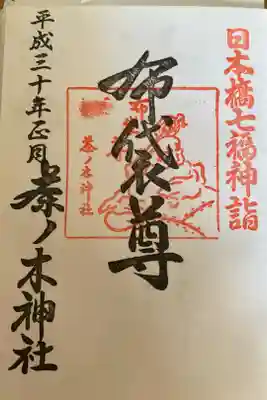 日本橋七福神詣
布袋尊
布
茶ノ木神社
平成三十年正月
茶ノ木神社